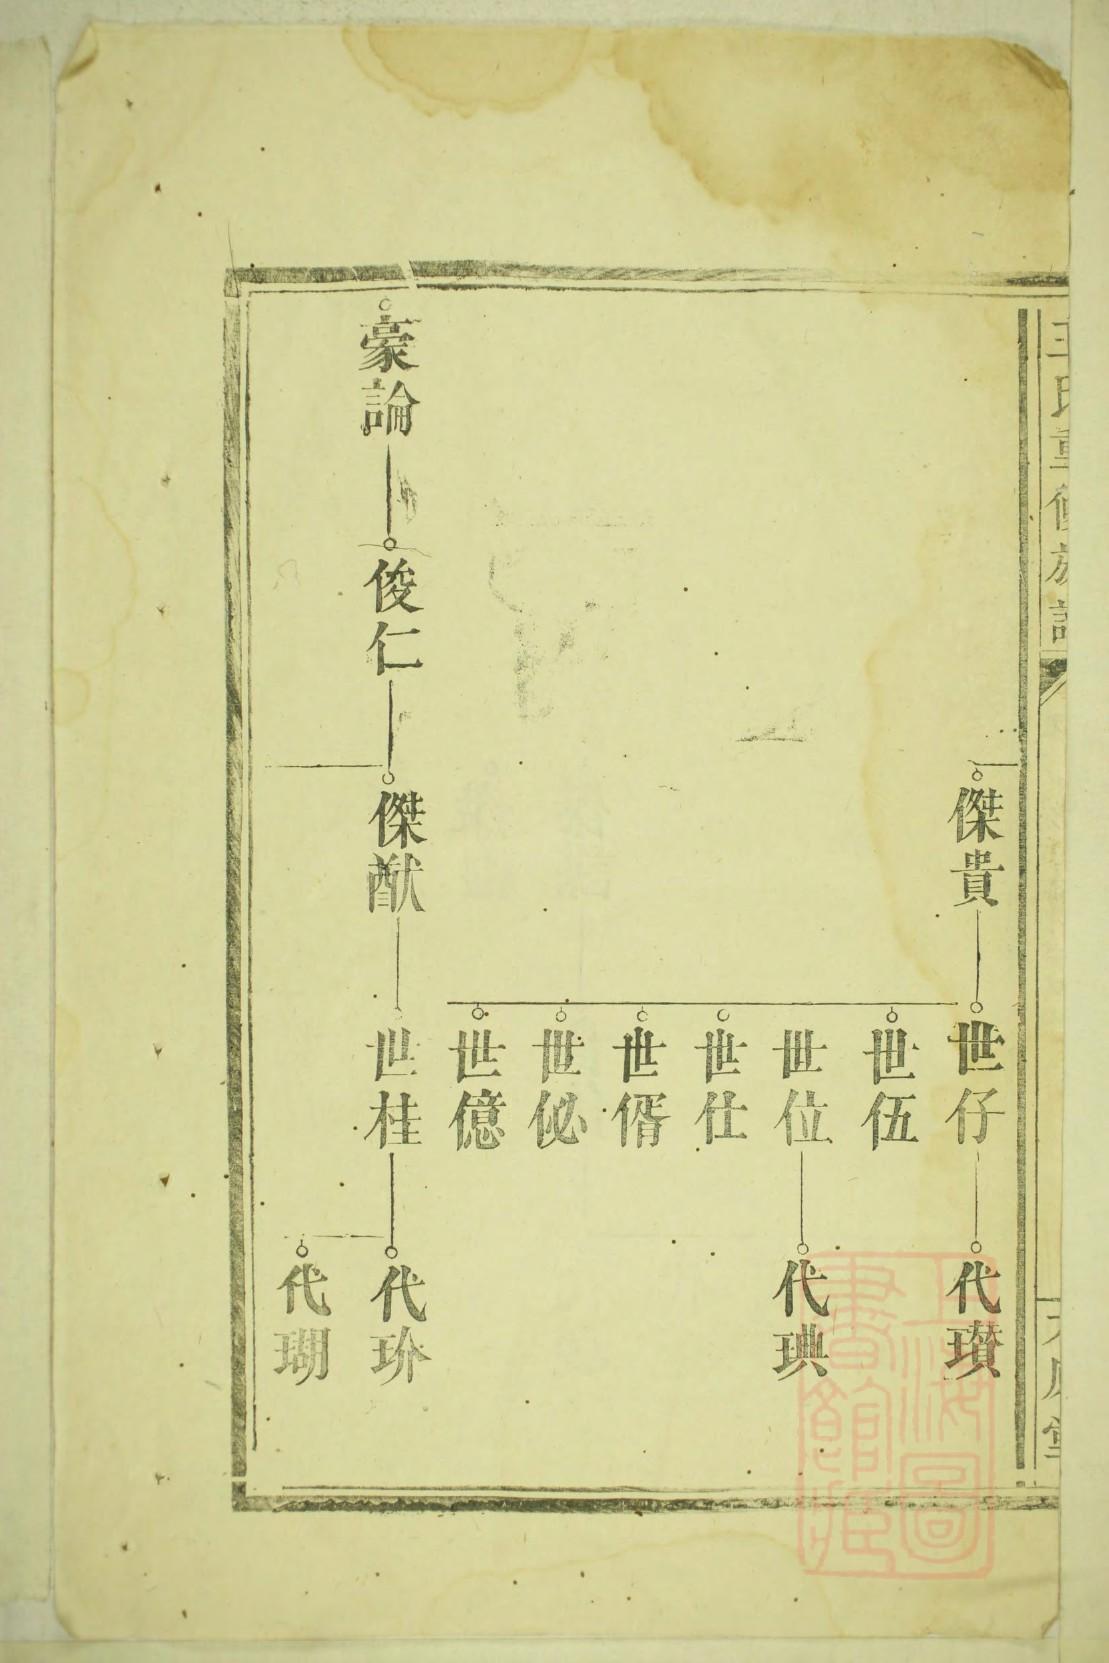 王氏重修族譜
傑貴
世仔
代璸
世伍
世位
代琠
世仕
世偦
世佖
世億
豪論
俊仁
傑猷
世桂
代玠
代瑚
上海圖書館藏